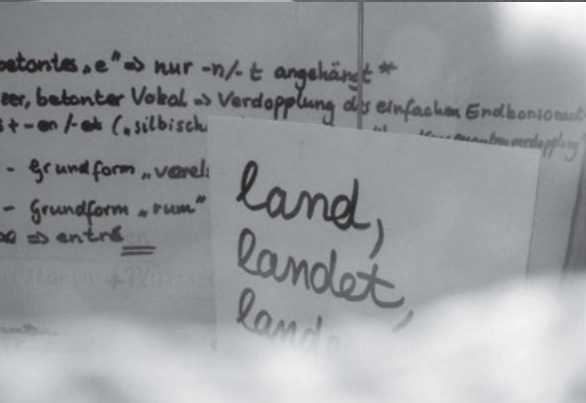 betontes „e" => nur -n/-t angehängt *
zer, betonter Vokal => Verdopplung des einfachen Endkonsonant
s + -en/-et („silbisch
- Grundform
- Grundform „rum"
=> entré
land,
landet,
lande